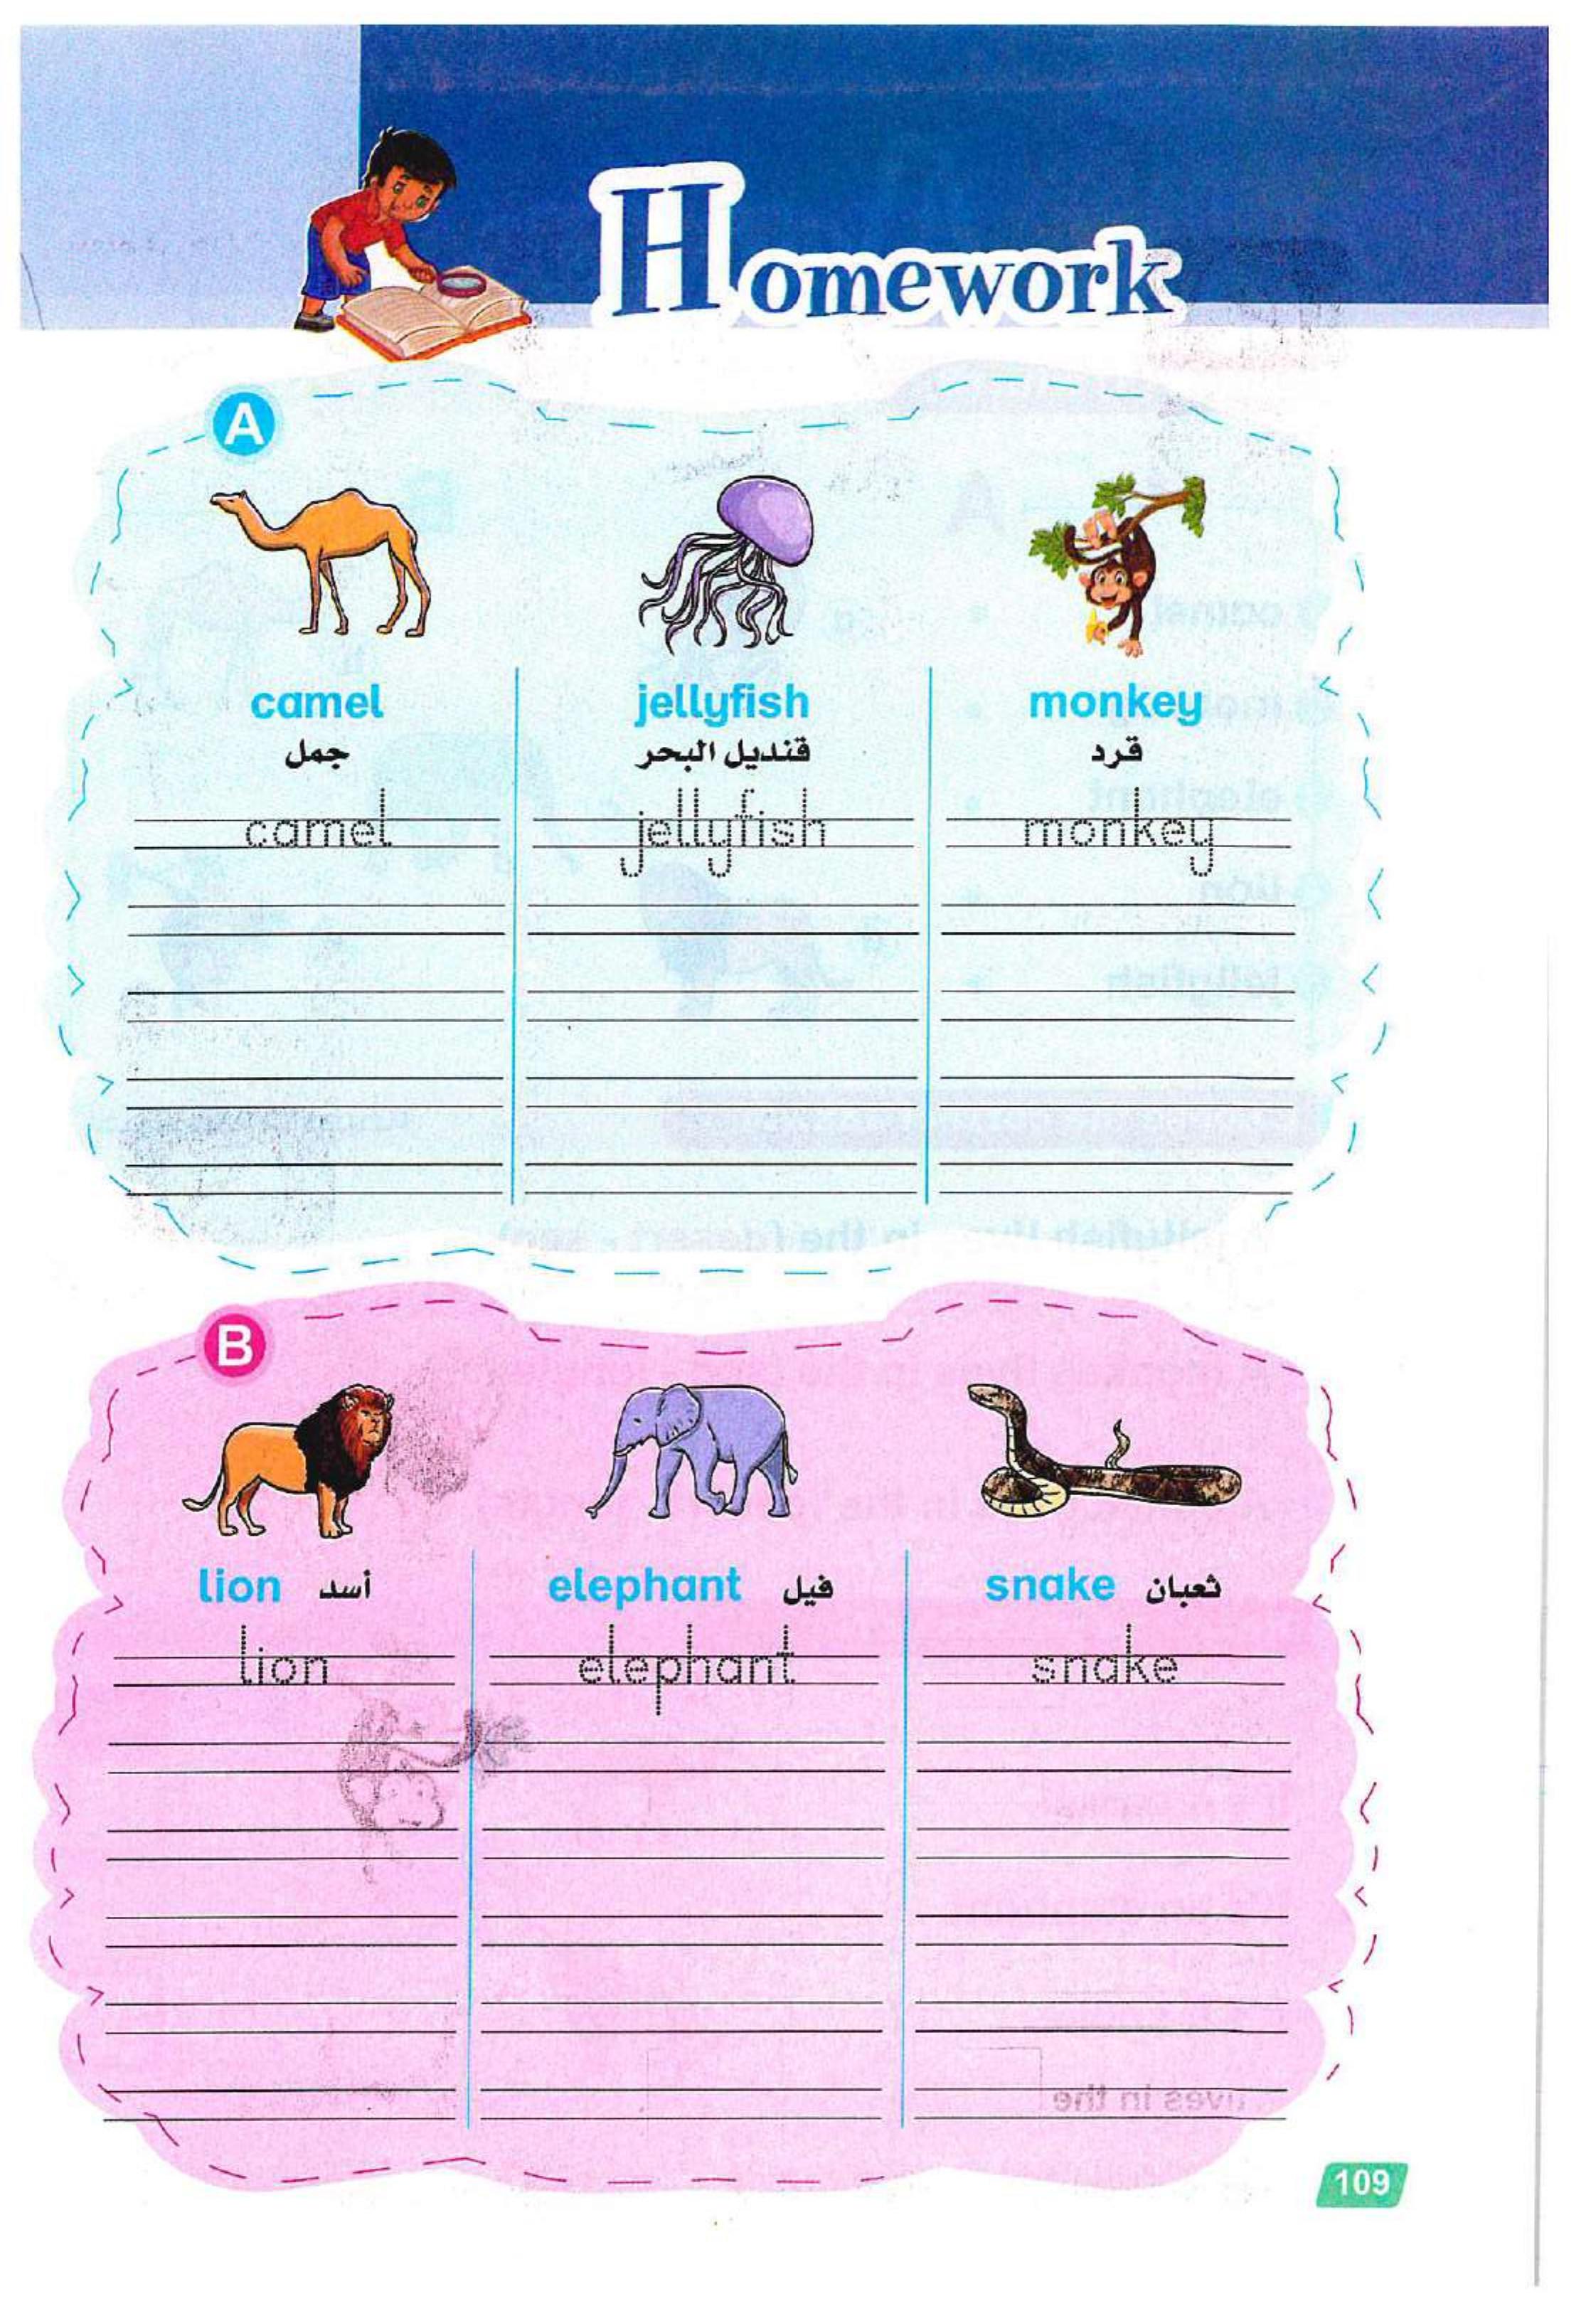 Homework
A
camel
jellyfish
monkey
جمل
قنديل البحر
قرد
camel
jellyfish
monkey
B
lion أسد
elephant فيل
snake ثعبان
lion
elephant
snake
109